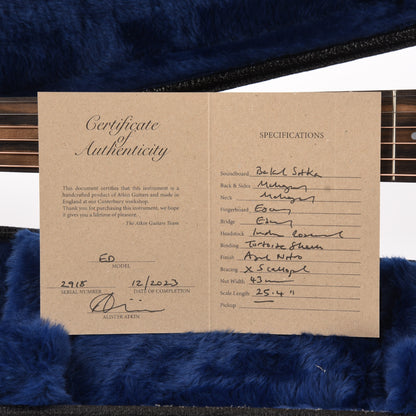 Certificate
of
Authenticity
This document certifies that this instrument is a
handcrafted product of Atkin Guitars and made in
England at our Canterbury workshop.
Thank you for purchasing this instrument, we hope
it gives you a lifetime of pleasure.
The Atkin Guitars Team
ED
MODEL
2918 12/2023
SERIAL NUMBER DATE OF COMPLETION
ALISTER ATKIN
SPECIFICATIONS
Soundboard Baked Sitka
Back & Sides Mahogany
Neck Mahogany
Fingerboard Ebony
Bridge Ebony
Headstock Indian Rosewood
Binding Tortoise Shell
Finish Aged Nitro
Bracing X Scalloped
Nut Width 43mm
Scale Length 25.4"
Pickup